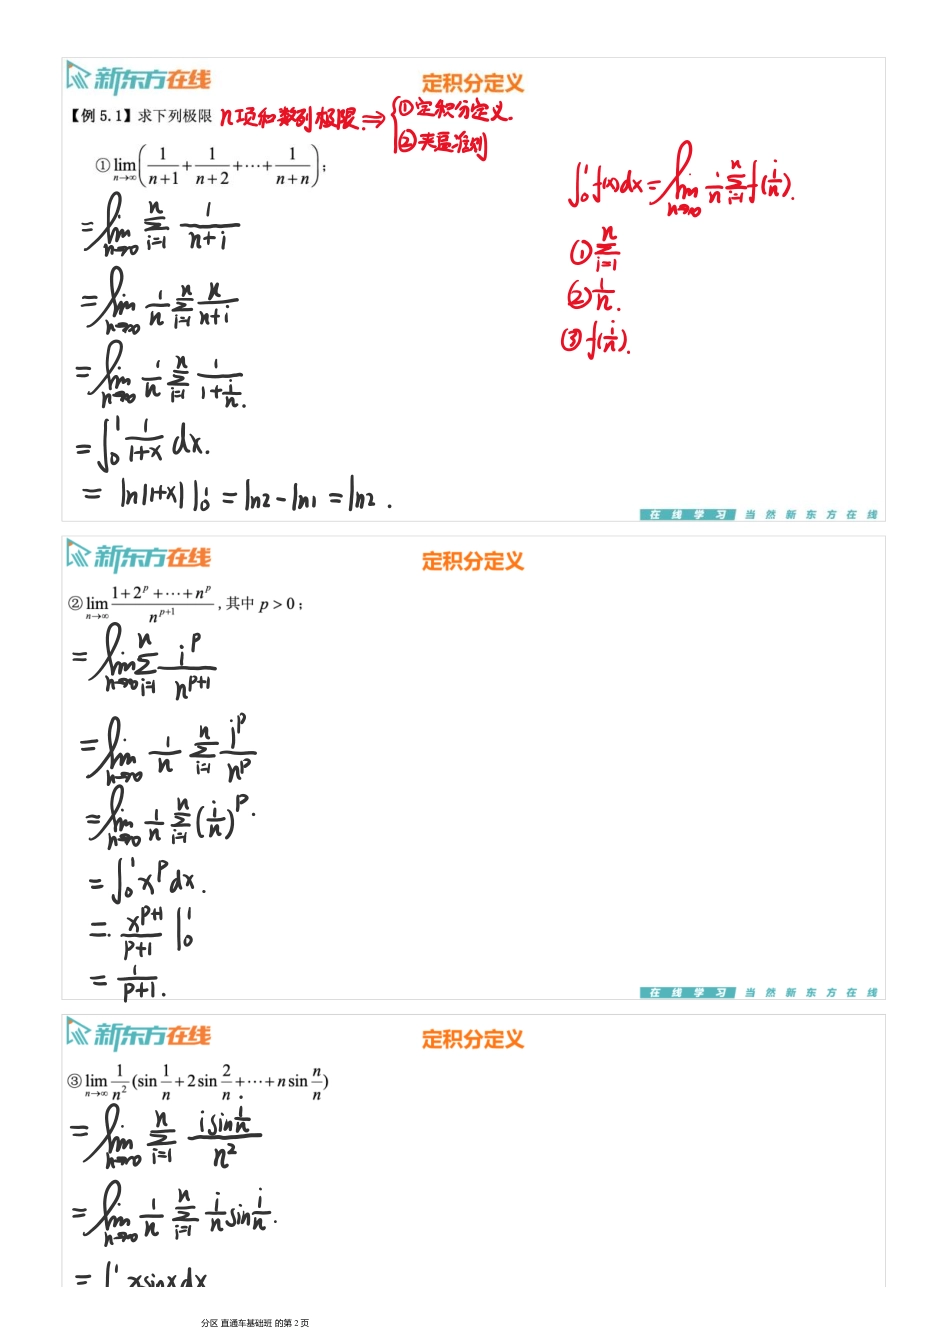 新东方在线
定积分定义
【例 5.1】求下列极限 n项和数列极限.⇒{①定积分定义.
②夹逼准则
①lim_{n→∞}(1/(n+1)+1/(n+2)+⋯+1/(n+n));
∫₀¹f(x)dx=lim_{n→∞} 1/n ∑_{i=1}^{n} f(i/n).
①∑_{i=1}^{n}
②1/n.
③f(i/n).
=lim_{n→∞} ∑_{i=1}^{n} 1/(n+i)
=lim_{n→∞} 1/n ∑_{i=1}^{n} n/(n+i)
=lim_{n→∞} 1/n ∑_{i=1}^{n} 1/(1+i/n).
=∫₀¹ 1/(1+x) dx.
= ln|1+x| |₀¹ = ln2 - ln1 = ln2.
在线学习 当然新东方在线
新东方在线
定积分定义
②lim_{n→∞} (1+2^p+⋯+n^p)/n^{p+1},其中 p>0;
=lim_{n→∞} ∑_{i=1}^{n} i^p/n^{p+1}
=lim_{n→∞} 1/n ∑_{i=1}^{n} i^p/n^p
=lim_{n→∞} 1/n ∑_{i=1}^{n} (i/n)^p.
=∫₀¹ x^p dx.
=. x^{p+1}/(p+1) |₀¹
= 1/(p+1).
在线学习 当然新东方在线
新东方在线
定积分定义
③lim_{n→∞} 1/n² (sin 1/n+2sin 2/n+⋯+n sin n/n)
=lim_{n→∞} ∑_{i=1}^{n} (i sin i/n)/n²
=lim_{n→∞} 1/n ∑_{i=1}^{n} i/n sin i/n.
=∫ ¹ x sinx dx
分区 直通车基础班 的第 2 页